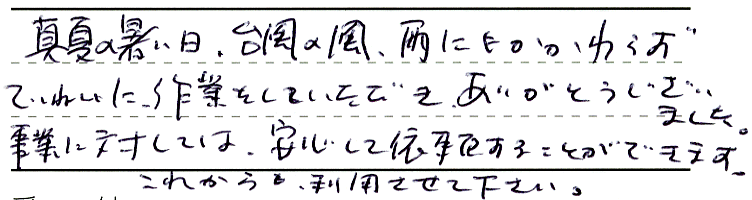 真夏の暑い日、台風の風、雨にもかかわらず
ていねいに、作業をしていただき、ありがとうございました。
事業に対しては、安心して依頼することができます。
これからも、利用させて下さい。